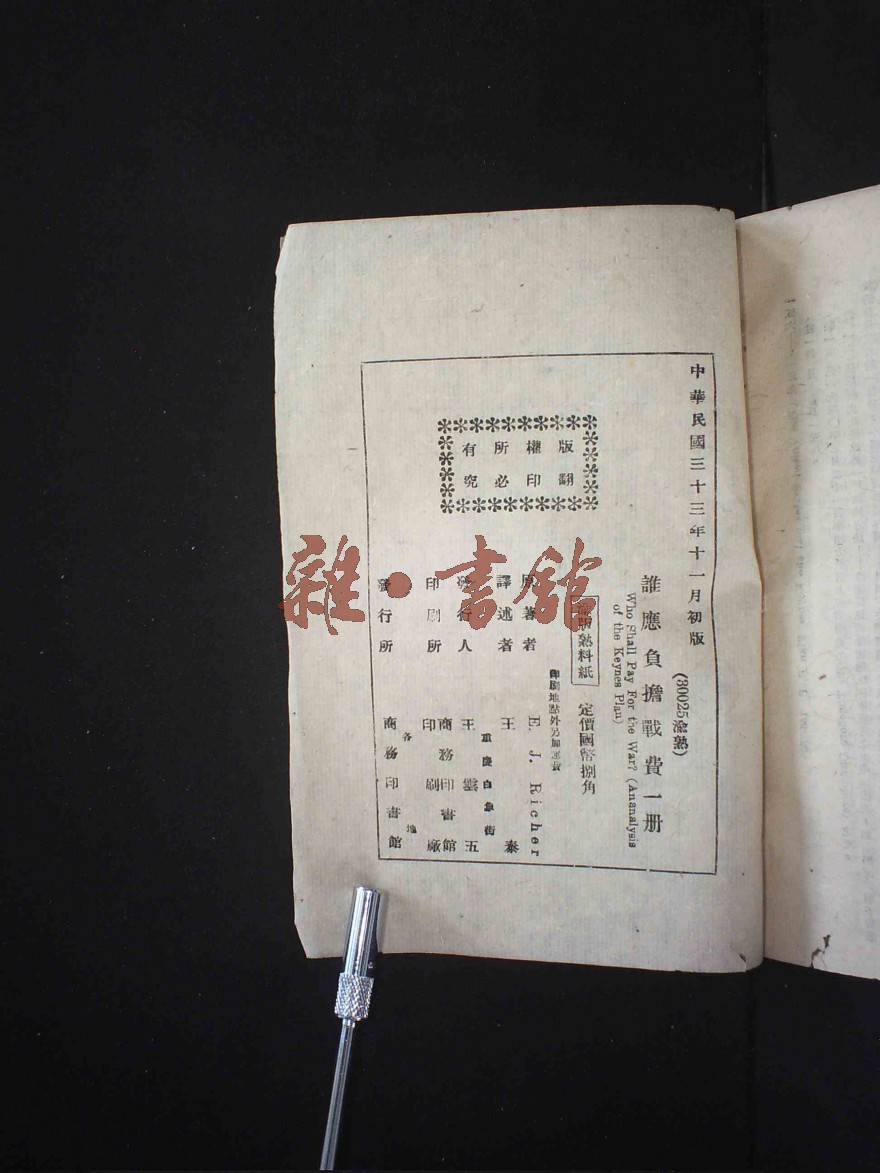 中華民國三十三年十一月初版
(30025渝熟)
誰應負擔戰費一册
Who Shall Pay For the War? (Ananalysis
of the Keynes Plan)
渝版熟料紙
定價國幣捌角
印刷地點外另加運費
版權所有
翻印必究
原著者 E. J. Richer
譯述者 王泰
重慶白象街
發行人 王雲五
印刷所 商務印書館
印刷廠
各地
發行所 商務印書館
雜·書館